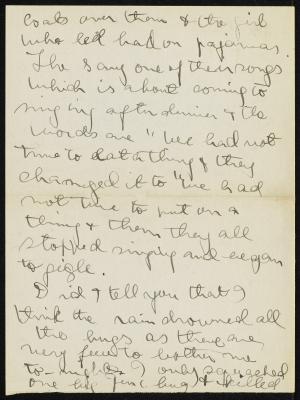 coats over them & the girl
who led had on pajamas.
She sang one of their songs
which is about coming to
singing after dinner & the
words are "We had not
time to eat a thing & they
changed it to "We had
not time to put on a
thing & then they all
stopped singing and began
to gigle.
Did I tell you that I
think the rain drowned all
the bugs as they are
very few to bother me
to-night I only squashed
one big June bug & killed